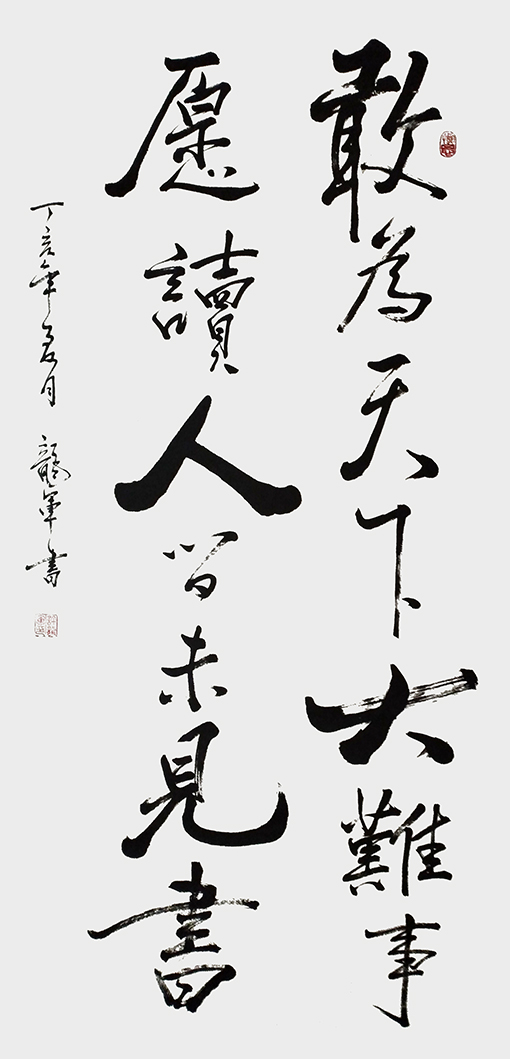 敢為天下大難事
愿讀人間未見書
丁亥年夏月 龍軍書